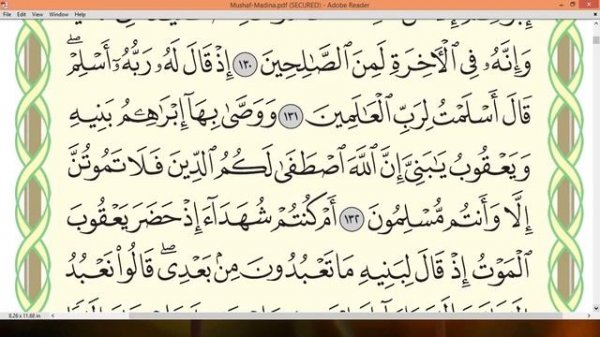 Mushaf-Madina.pdf (SECURED) - Adobe Reader
File Edit View Window Help
وَإِنَّهُۥ فِى ٱلْأَخِرَةِ لَمِنَ ٱلصَّٰلِحِينَ ١٣٠ إِذْ قَالَ لَهُۥ رَبُّهُۥٓ أَسْلِمْۖ
قَالَ أَسْلَمْتُ لِرَبِّ ٱلْعَٰلَمِينَ ١٣١ وَوَصَّىٰ بِهَآ إِبْرَٰهِـۧمُ بَنِيهِ
وَيَعْقُوبُ يَٰبَنِىَّ إِنَّ ٱللَّهَ ٱصْطَفَىٰ لَكُمُ ٱلدِّينَ فَلَا تَمُوتُنَّ
إِلَّا وَأَنتُم مُّسْلِمُونَ ١٣٢ أَمْ كُنتُمْ شُهَدَآءَ إِذْ حَضَرَ يَعْقُوبَ
ٱلْمَوْتُ إِذْ قَالَ لِبَنِيهِ مَا تَعْبُدُونَ مِنۢ بَعْدِىۖ قَالُوا۟ نَعْبُدُ
8.26 x 11.68 in